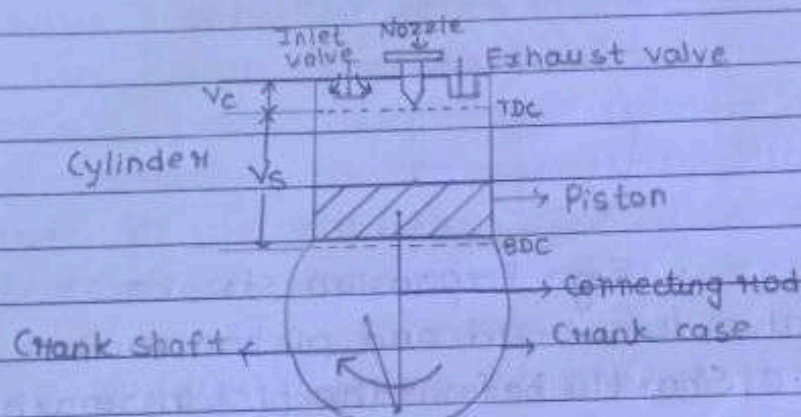 Inlet valve
Nozzle
Exhaust valve
Vc
TDC
Cylinder
Vs
Piston
BDC
Connecting rod
Crank shaft
Crank case